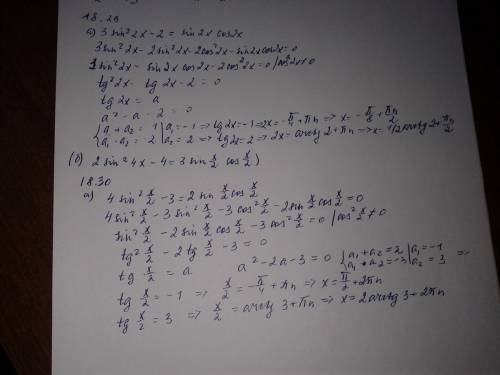 18.29
а) 3 sin² 2x - 2 = sin 2x cos 2x
3 sin² 2x - 2 sin² 2x - 2 cos² 2x - sin 2x cos 2x = 0
1 sin² 2x - sin 2x cos 2x - 2 cos² 2x = 0 | cos² 2x ≠ 0
tg² 2x - tg 2x - 2 = 0
tg 2x = a
a² - a - 2 = 0
{ a₁ + a₂ = 1 | a₁ = -1 => tg 2x = -1 => 2x = -π/4 + πn => x = -π/8 + πn/2
a₁ · a₂ = -2 | a₂ = 2 => tg 2x = 2 => 2x = arctg 2 + πn => x = 1/2 arctg 2 + πn/2
(б) 2 sin² 4x - 4 = 3 sin x/2 cos x/2)
18.30
а) 4 sin² x/2 - 3 = 2 sin x/2 cos x/2
4 sin² x/2 - 3 sin² x/2 - 3 cos² x/2 - 2 sin x/2 cos x/2 = 0
sin² x/2 - 2 sin x/2 cos x/2 - 3 cos² x/2 = 0 | cos² x/2 ≠ 0
tg² x/2 - 2 tg x/2 - 3 = 0
tg x/2 = a a² - 2a - 3 = 0 { a₁ + a₂ = 2 | a₁ = -1
a₁ + a₂ = -3 | a₂ = 3 =>
tg x/2 = -1 => x/2 = -π/4 + πn => x = π/2 + 2πn
tg x/2 = 3 => x/2 = arctg 3 + πn => x = 2 arctg 3 + 2πn